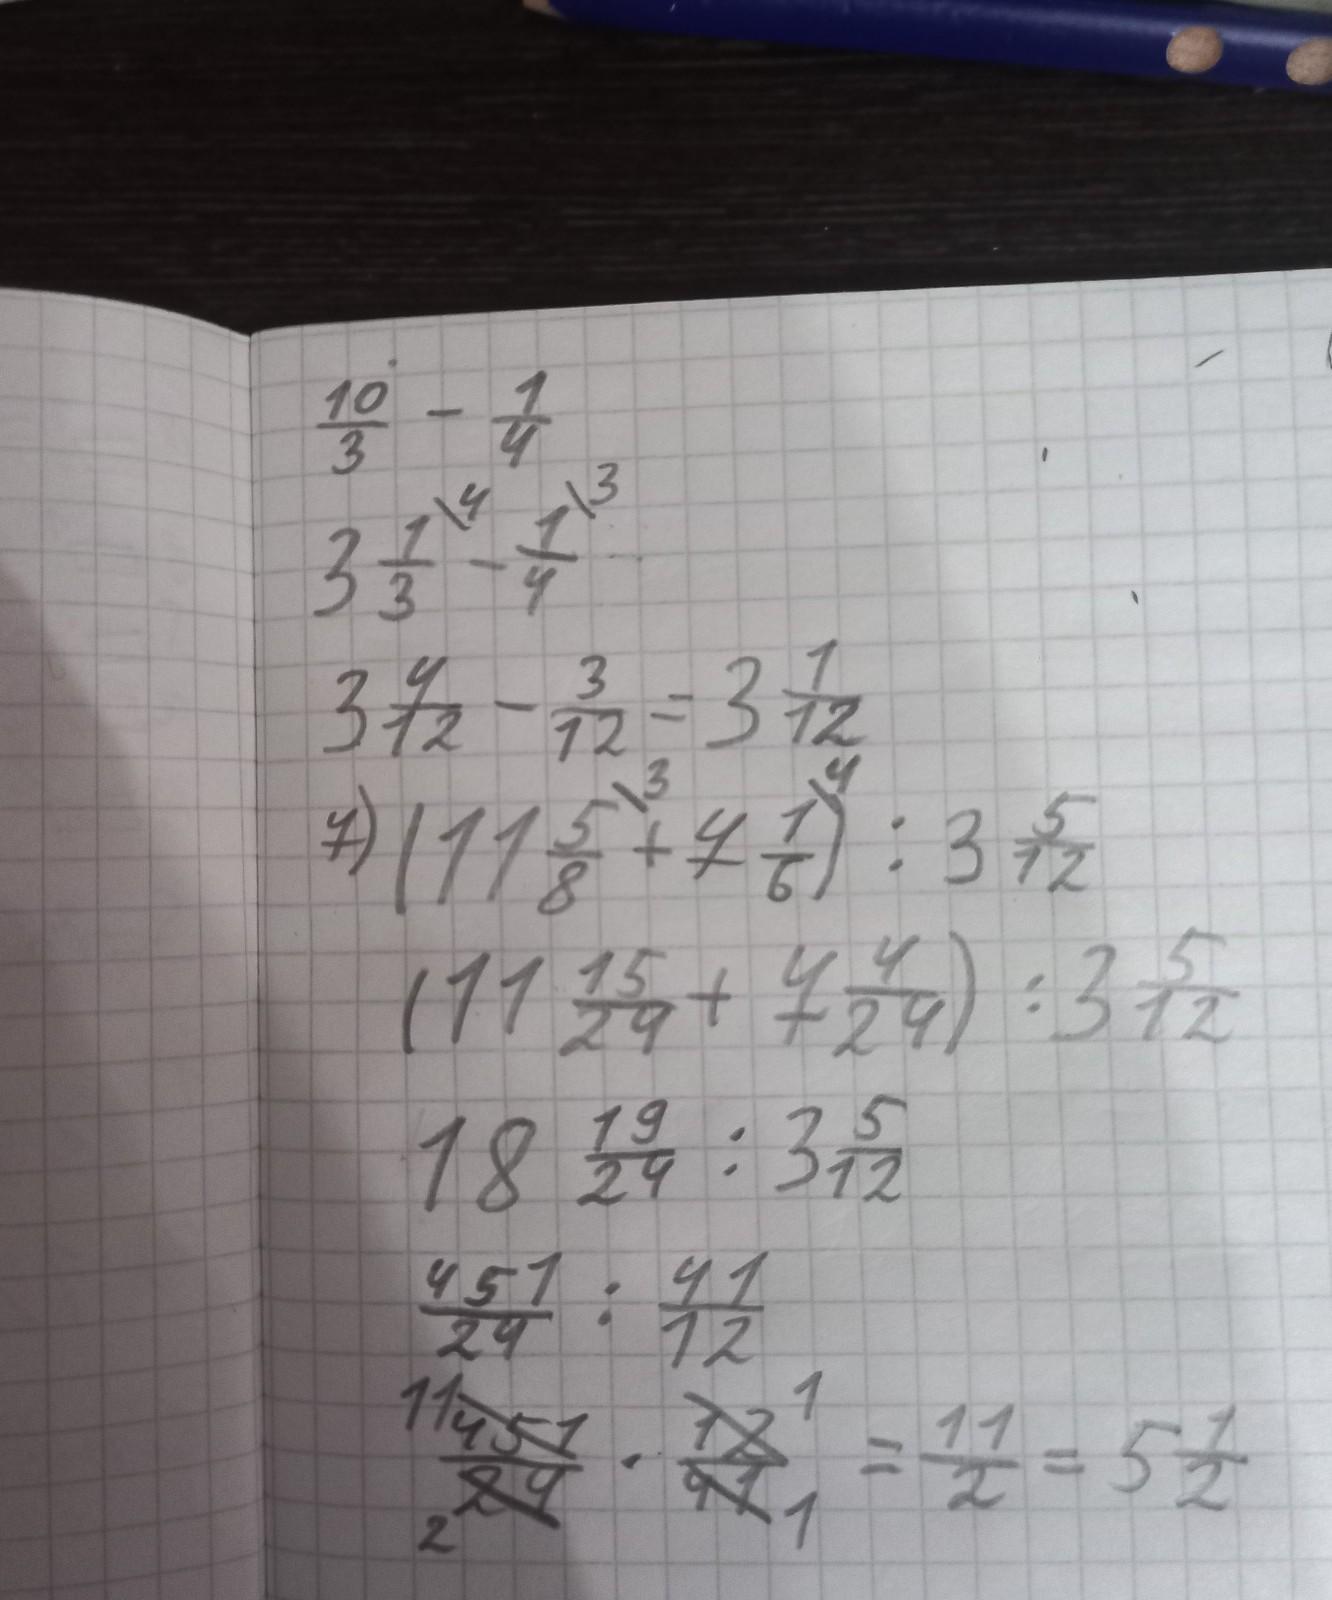 10/3 - 1/4
3 1/3 \4 - 1/4 \3
3 4/12 - 3/12 = 3 1/12
7) (11 5/8 \3 + 7 1/6 \4) : 3 5/12
(11 15/24 + 7 4/24) : 3 5/12
18 19/24 : 3 5/12
451/24 : 41/12
11 451/24 2 · 12/41 1 1 = 11/2 = 5 1/2